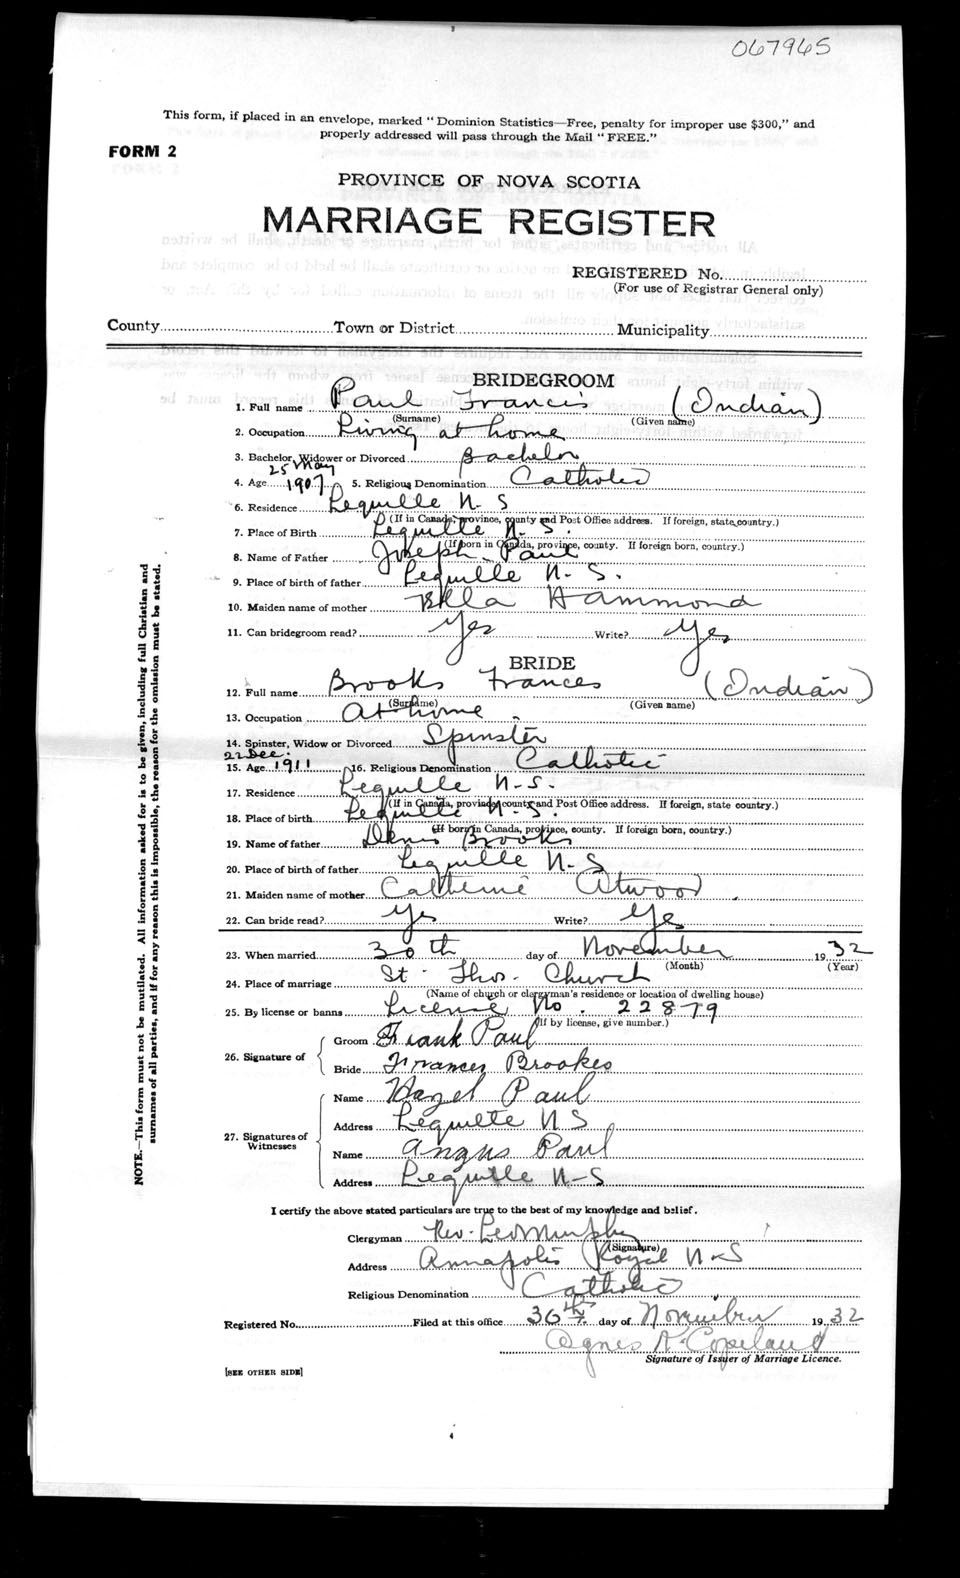 067965
This form, if placed in an envelope, marked "Dominion Statistics—Free, penalty for improper use $300," and
properly addressed will pass through the Mail "FREE."
FORM 2
PROVINCE OF NOVA SCOTIA
MARRIAGE REGISTER
REGISTERED No.
(For use of Registrar General only)
County Town or District Municipality
BRIDEGROOM
1. Full name Paul Francis (Indian)
(Surname) (Given name)
2. Occupation Living at home
3. Bachelor, Widower or Divorced Bachelor
25 May
4. Age 1907 5. Religious Denomination Catholic
6. Residence Lequille N-S
(If in Canada, province, county and Post Office address. If foreign, state country.)
7. Place of Birth Lequille N-S.
(If born in Canada, province, county. If foreign born, country.)
8. Name of Father Joseph Paul
9. Place of birth of father Lequille N-S.
10. Maiden name of mother Bella Hammond
11. Can bridegroom read? Yes Write? Yes
BRIDE
12. Full name Brooks Frances (Indian)
(Surname) (Given name)
13. Occupation At home
14. Spinster, Widow or Divorced Spinster
22 Dec.
15. Age 1911 16. Religious Denomination Catholic
17. Residence Lequille N-S.
(If in Canada, province, county and Post Office address. If foreign, state country.)
18. Place of birth Lequille N-S.
(If born in Canada, province, county. If foreign born, country.)
19. Name of father Denis Brooks
20. Place of birth of father Lequille N-S
21. Maiden name of mother Catherine Atwood
22. Can bride read? Yes Write? Yes
23. When married 30th day of November 1932
(Month) (Year)
24. Place of marriage St. Thos. Church
(Name of church or clergyman's residence or location of dwelling house)
25. By license or banns License No. 22879
(If by license, give number.)
26. Signature of
Groom Frank Paul
Bride Frances Brookes
27. Signatures of Witnesses
Name Hazel Paul
Address Lequille N S
Name Angus Paul
Address Lequille N-S
I certify the above stated particulars are true to the best of my knowledge and belief.
Clergyman Rev. Leo Murphy
(Signature)
Address Annapolis Royal N-S
Religious Denomination Catholic
Registered No. Filed at this office 30th day of November 1932
Agnes R. Copeland
Signature of Issuer of Marriage Licence.
[SEE OTHER SIDE]
NOTE.—This form must not be mutilated. All information asked for is to be given, including full Christian and
surnames of all parties, and if for any reason this is impossible, the reason for the omission must be stated.